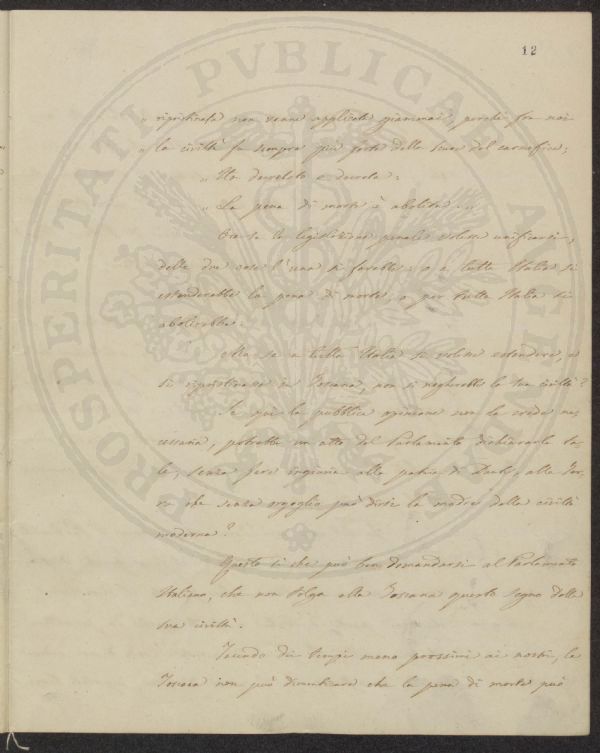 12
PROSPERITATI PVBLICAE AVGENDAE
„ ripristinata non venne applicata giammai, perchè fra noi
„ la civiltà fu sempre più forte della scure del carnefice;
„ Ha decretato e decreta:
„ La pena di morte è abolita. „
Ora se la legislazione penale volesse unificarsi,
delle due cose l'una si farebbe: o a tutta Italia si
estenderebbe la pena di morte, o per tutta Italia si
abolirebbe.
Ma se a tutta Italia si volesse estendere, e
si ripristinasse in Toscana, non si negherebbe la sua civiltà?
Se poi la pubblica opinione non la crede ne-
cessaria, potrebbe un atto del Parlamento dichiararla ta-
le, senza fare ingiuria alla patria di Dante, alla Ter-
ra che senza orgoglio può dirsi la madre della civiltà
moderna?
Questo sì che può ben domandarsi al Parlamento
Italiano, che non tolga alla Toscana questo segno della
sua civiltà.
Tacendo di tempi meno prossimi ai nostri, la
Toscana non può dimenticare che la pena di morte può